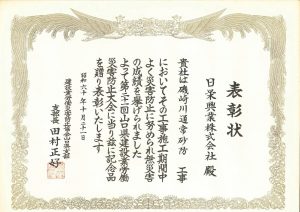 表彰状
日栄興業株式会社 殿
貴社は磯崎川通常砂防 工事
においてその工事施工期間中
よく災害防止に努められ無災害
の成績を挙げられました
よって第二十一回山口県建設業労働
災害防止大会に当り茲に記念品
を贈り表彰いたします
昭和六十年十月二十一日
建設業労働災害防止協会山口県支部
支部長 田村正好